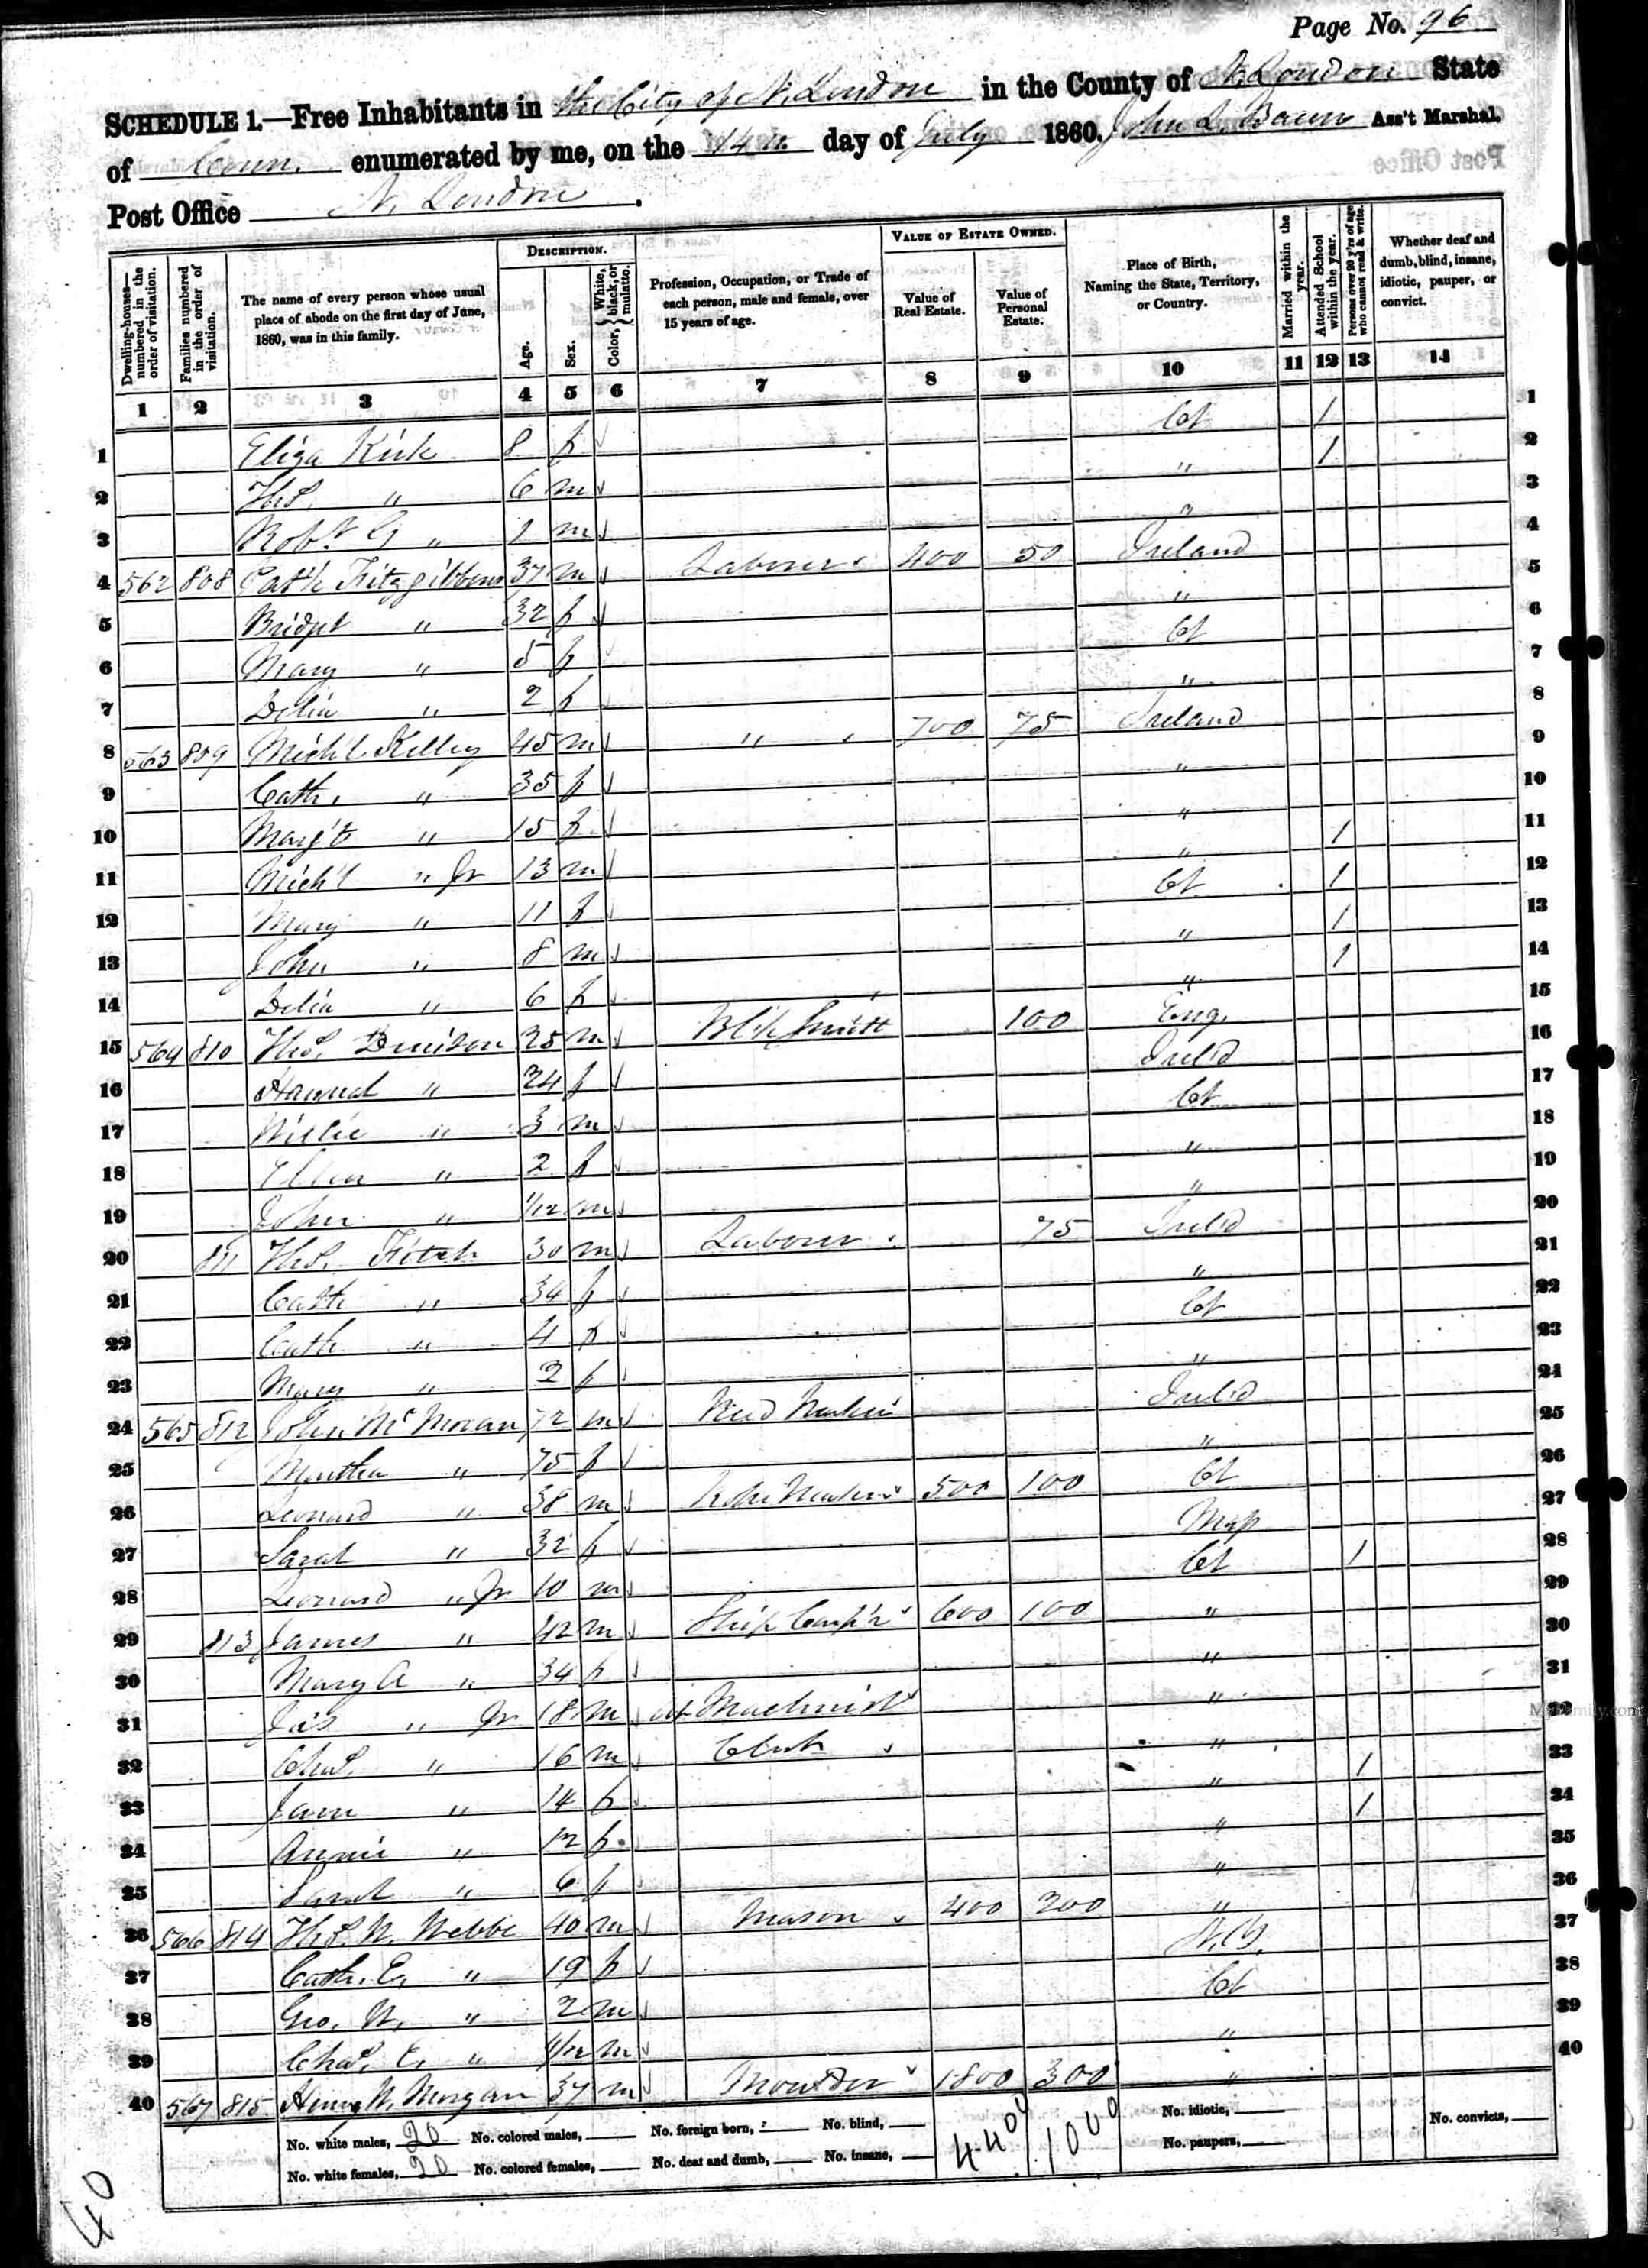 Page No. 96
SCHEDULE 1.—Free Inhabitants in the City of N. London in the County of N. London State
of Conn. enumerated by me, on the 14th day of July 1860. John L. Ass't Marshal.
Post Office N. London.
DESCRIPTION. VALUE OF ESTATE OWNED.
Dwelling-houses—numbered in the order of visitation. Families numbered in the order of visitation. The name of every person whose usual place of abode on the first day of June, 1860, was in this family. Age. Sex. Color, { White, black, or mulatto. Profession, Occupation, or Trade of each person, male and female, over 15 years of age. Value of Real Estate. Value of Personal Estate. Place of Birth, Naming the State, Territory, or Country. Married within the year. Attended School within the year. Persons over 20 y'rs of age who cannot read & write. Whether deaf and dumb, blind, insane, idiotic, pauper, or convict.
1 2 3 4 5 6 7 8 9 10 11 12 13 14
1 Eliza Kirk 8 f Ct 1 1
2 Thos. " 6 m " 1 2
3 Robt G " 1 m " 3
4 562 808 Pat'k Fitzgibbons 37 m Laborer 400 50 Ireland 4
5 Bridget " 32 f " 5
6 Mary " 5 f Ct 6
7 Delia " 2 f " 7
8 563 809 Mich'l Kelley 45 m " 700 75 Ireland 8
9 Cath. " 35 f " 9
10 Marg't " 15 f " 10
11 Mich'l " Jr 13 m " 1 11
12 Mary " 11 f Ct 1 12
13 John " 8 m " 1 13
14 Delia " 6 f " 1 14
15 564 810 Thos. Denison 25 m Blk Smith 100 Eng. 15
16 Hannah " 24 f Irel'd 16
17 Willie " 3 m Ct 17
18 Ellen " 2 f " 18
19 John " 1/12 m " 19
20 811 Thos. Fitch 30 m Laborer 75 Irel'd 20
21 Cath " 34 f " 21
22 Cath " 4 f Ct 22
23 Mary " 2 f " 23
24 565 812 John McMoran 72 m Reed Maker Irel'd 24
25 Martha " 75 f " 25
26 Leonard " 38 m Maker 500 100 Ct 26
27 Sarah " 32 f Mass 27
28 Leonard " Jr 10 m Ct 1 28
29 813 James " 42 m Ship Carp'r 600 100 " 29
30 Mary A " 34 f " 30
31 Jas " Jr 18 m Machinist " 31
32 Chas. " 16 m Clerk " 32
33 Jane " 14 f " 1 33
34 Annie " 12 f " 1 34
35 Sarah " 6 f " 35
36 566 814 Thos. W. Webbe 40 m Mason 400 200 " 36
37 Cath. E. " 19 f N.Y. 37
38 Geo. W. " 2 m Ct 38
39 Chas. E. " m " 39
40 567 815 Henry W. Morgan 37 m Moulder 1800 300 " 40
No. white males, 20 No. colored males, No. foreign born, No. blind, 4400 1000 No. idiotic, No. convicts,
No. white females, 20 No. colored females, No. deaf and dumb, No. insane, No. paupers,
40